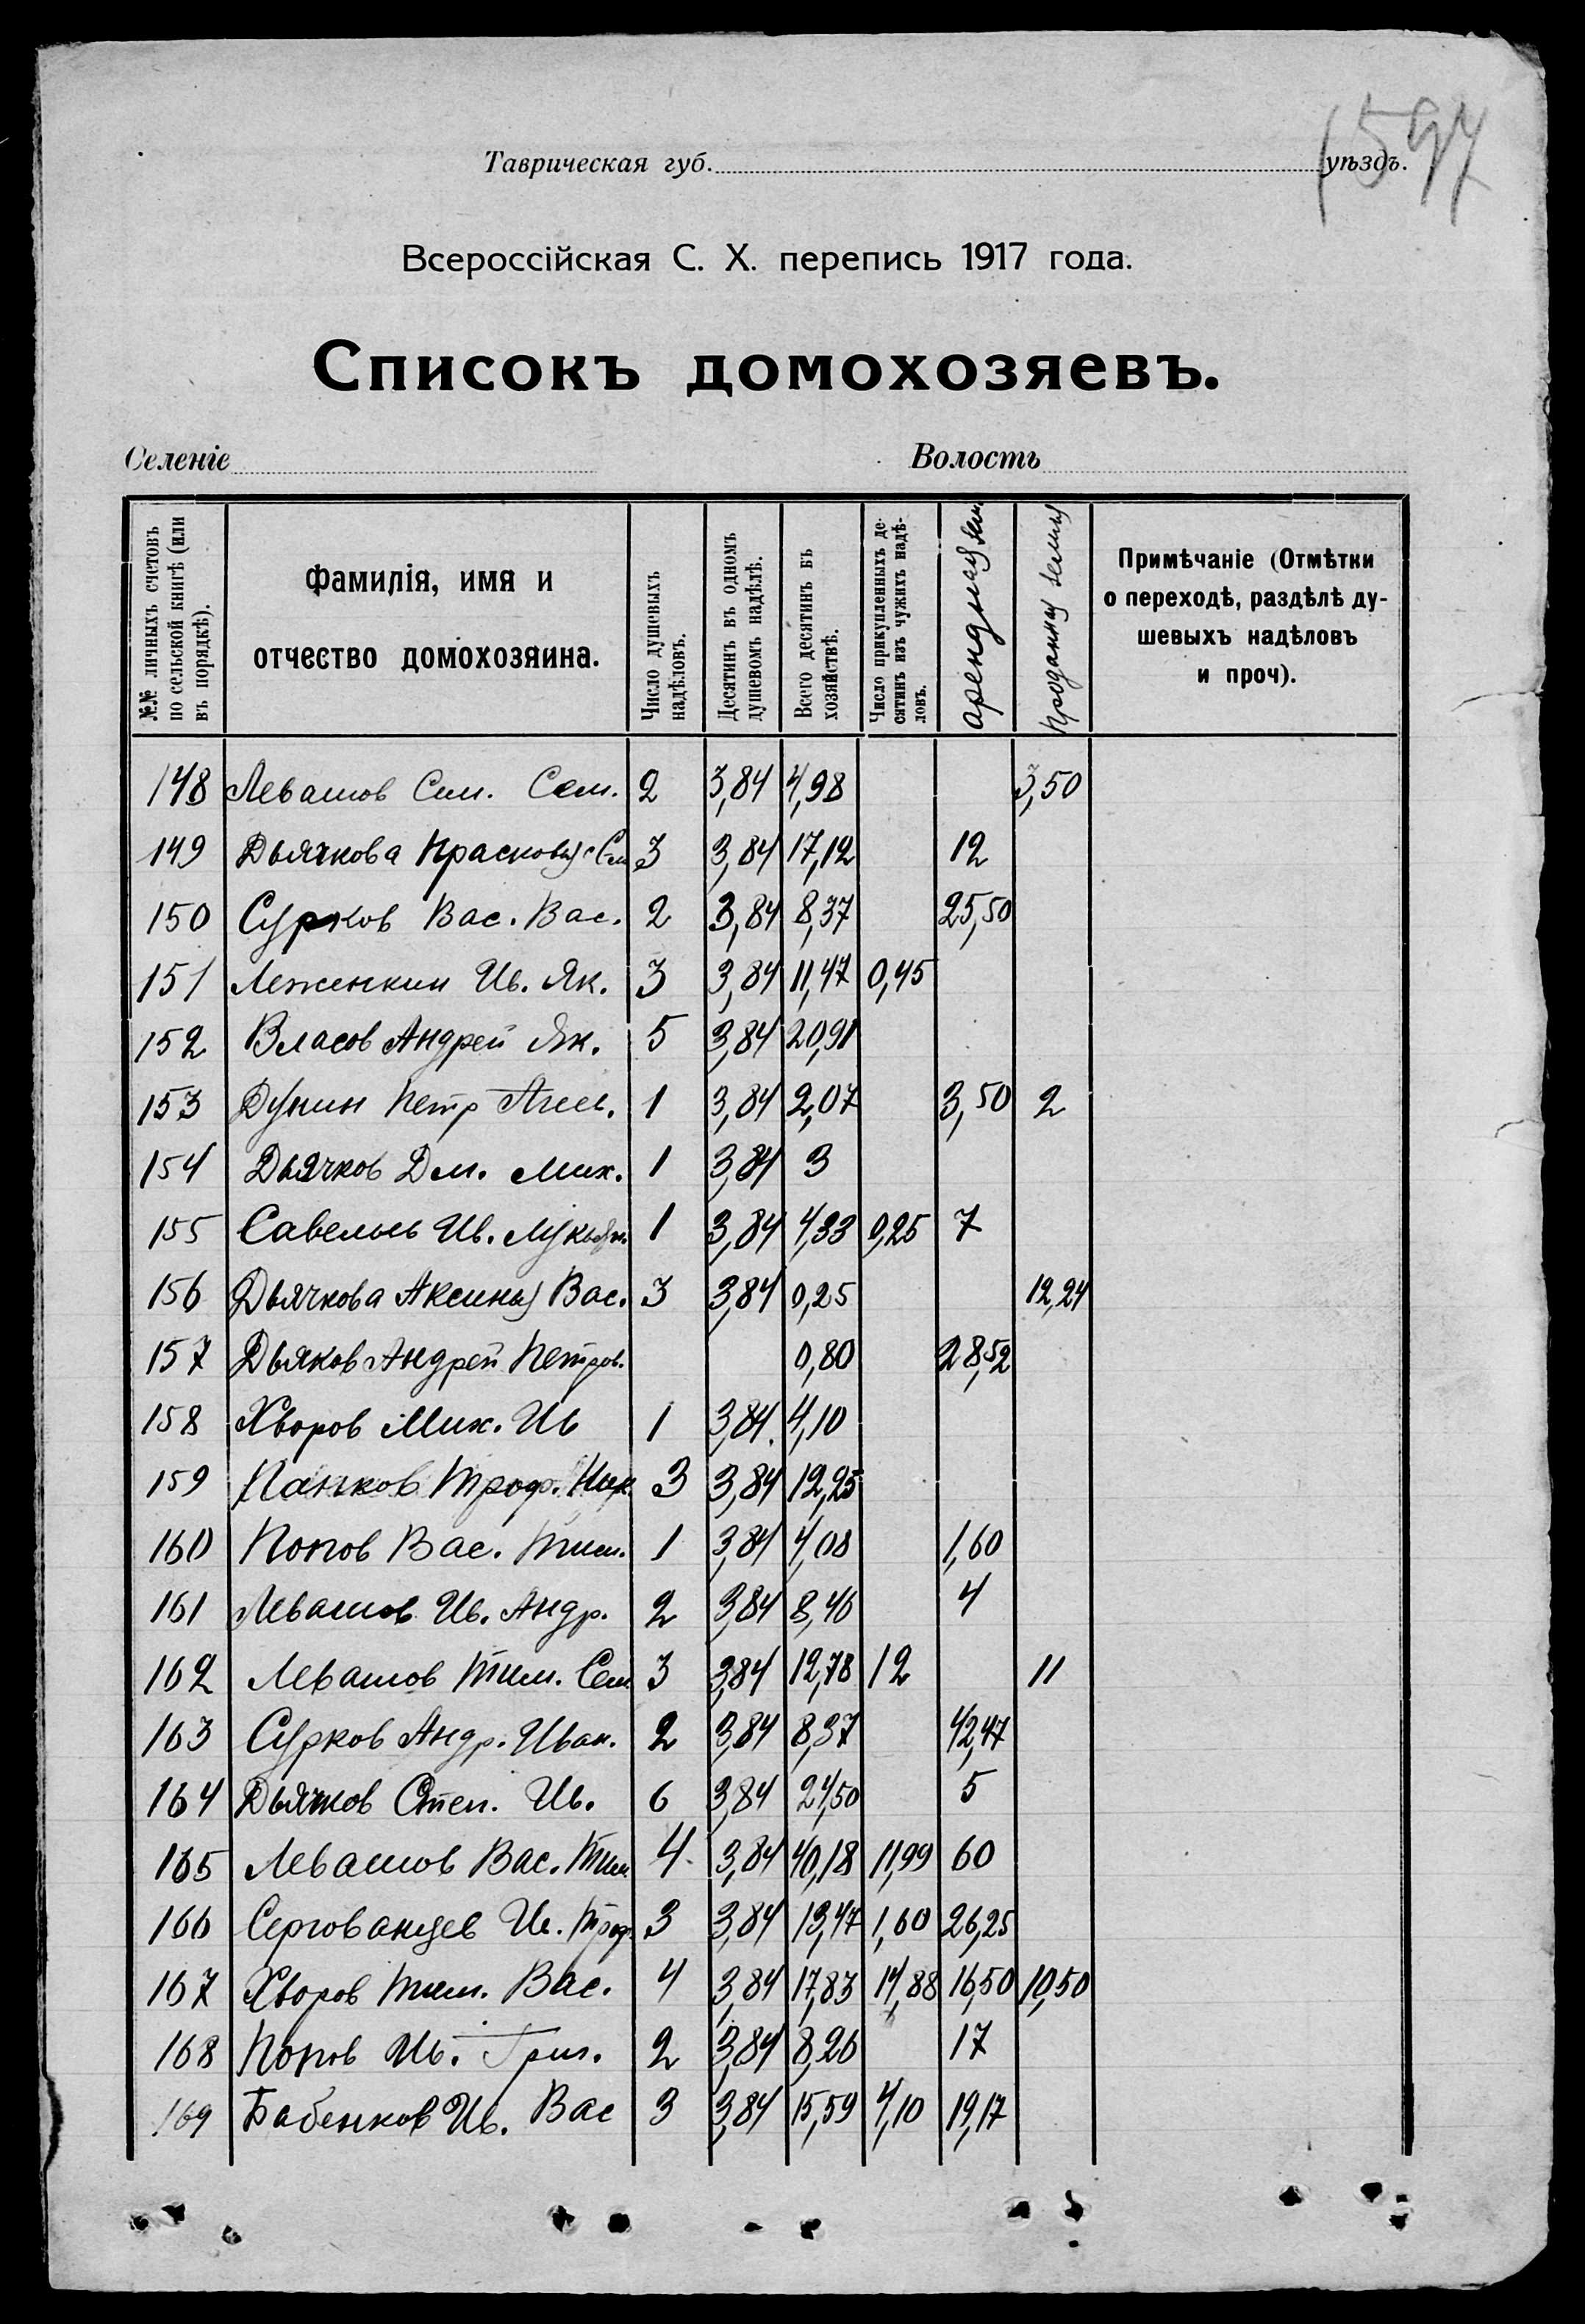 1597
Таврическая губ. уѣздъ.
Всероссійская С. Х. перепись 1917 года.
Списокъ домохозяевъ.
Селеніе Волость
№№ личныхъ счетовъ по сельской книгѣ (или въ порядкѣ).
Фамилія, имя и отчество домохозяина.
Число душевыхъ надѣловъ.
Десятинъ въ одномъ душевомъ надѣлѣ.
Всего десятинъ въ хозяйствѣ.
Число прикупленныхъ десятинъ изъ чужихъ надѣловъ.
арендная зем.
проданная земля
Примѣчаніе (Отмѣтки о переходѣ, раздѣлѣ душевыхъ надѣловъ и проч).
148 Левашов Сем. Сем. 2 3,84 4,98 3,50
149 Дьячкова Прасковья Сем 3 3,84 17,12 12
150 Сурков Вас. Вас. 2 3,84 8,37 25,50
151 Леженкин Ив. Як. 3 3,84 11,47 0,45
152 Власов Андрей Як. 5 3,84 20,91
153 Дунин Петр 1 3,84 2,07 3,50 2
154 Дьячков Дм. Мих. 1 3,84 3
155 Савельев Ив. Лукьян. 1 3,84 4,33 0,25 7
156 Дьячкова Аксинья Вас. 3 3,84 0,25 12,24
157 Дьяков Андрей Петров. 0,80 28,52
158 Хворов Мих. Ив 1 3,84 4,10
159 Панков Троф. 3 3,84 12,25
160 Попов Вас. Тим. 1 3,84 4,08 1,60
161 Левашов Ив. Андр. 2 3,84 8,46 4
162 Левашов Тим. Сем 3 3,84 12,78 12 11
163 Сурков Андр. Иван. 2 3,84 8,37 42,47
164 Дьячков Степ. Ив. 6 3,84 24,50 5
165 Левашов Вас. Тим 4 3,84 40,18 11,99 60
166 Сергованцев Ив. Троф. 3 3,84 13,47 1,60 26,25
167 Хворов Тим. Вас. 4 3,84 17,83 14,88 16,50 10,50
168 Попов Ив. Григ. 2 3,84 8,26 17
169 Бабенков Ив. Вас 3 3,84 15,59 4,10 19,17